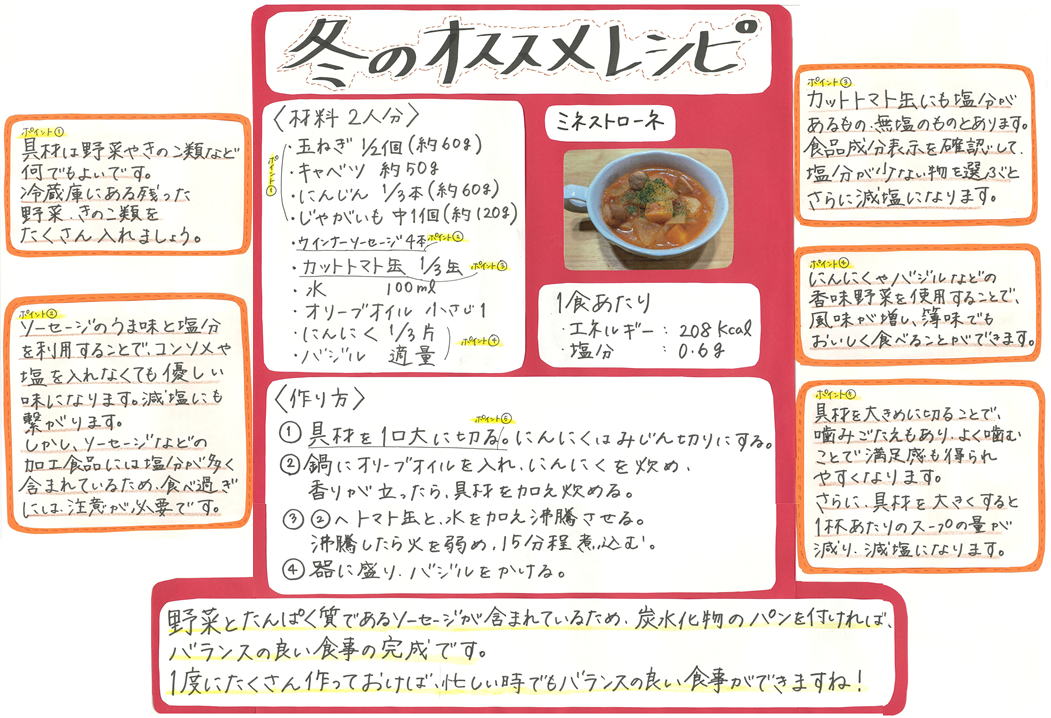 冬のオススメレシピ
〈材料 2人分〉
ポイント①
・玉ねぎ 1/2個(約60g)
・キャベツ 約50g
・にんじん 1/3本(約60g)
・じゃがいも 中1個(約120g)
・ウインナーソーセージ4本 ポイント②
・カットトマト缶 1/3缶 ポイント③
・水 100ml
・オリーブオイル 小さじ1
・にんにく 1/3片
・バジル 適量
ポイント④
ミネストローネ
1食あたり
・エネルギー : 208kcal
・塩分 : 0.6g
〈作り方〉
ポイント⑤
① 具材を1口大に切る。にんにくはみじん切りにする。
② 鍋にオリーブオイルを入れ、にんにくを炒め、
香りが立ったら、具材を加え炒める。
③ ②へトマト缶と、水を加え沸騰させる。
沸騰したら火を弱め、15分程煮込む。
④ 器に盛り、バジルをかける。
ポイント①
具材は野菜やきのこ類など
何でもよいです。
冷蔵庫にある残った
野菜、きのこ類を
たくさん入れましょう。
ポイント②
ソーセージのうま味と塩分
を利用することで、コンソメや
塩を入れなくても優しい
味になります。減塩にも
繋がります。
しかし、ソーセージなどの
加工食品には塩分が多く
含まれているため、食べ過ぎ
には注意が必要です。
ポイント③
カットトマト缶にも塩分が
あるもの、無塩のものとあります。
食品成分表示を確認して、
塩分が少ない物を選ぶと
さらに減塩になります。
ポイント④
にんにくやバジルなどの
香味野菜を使用することで、
風味が増し、薄味でも
おいしく食べることができます。
ポイント⑤
具材を大きめに切ることで、
噛みごたえもあり、よく噛む
ことで満足感も得られ
やすくなります。
さらに、具材を大きくすると
1杯あたりのスープの量が
減り、減塩になります。
野菜とたんぱく質であるソーセージが含まれているため、炭水化物のパンを付ければ、
バランスの良い食事の完成です。
1度にたくさん作っておけば、忙しい時でもバランスの良い食事ができますね！